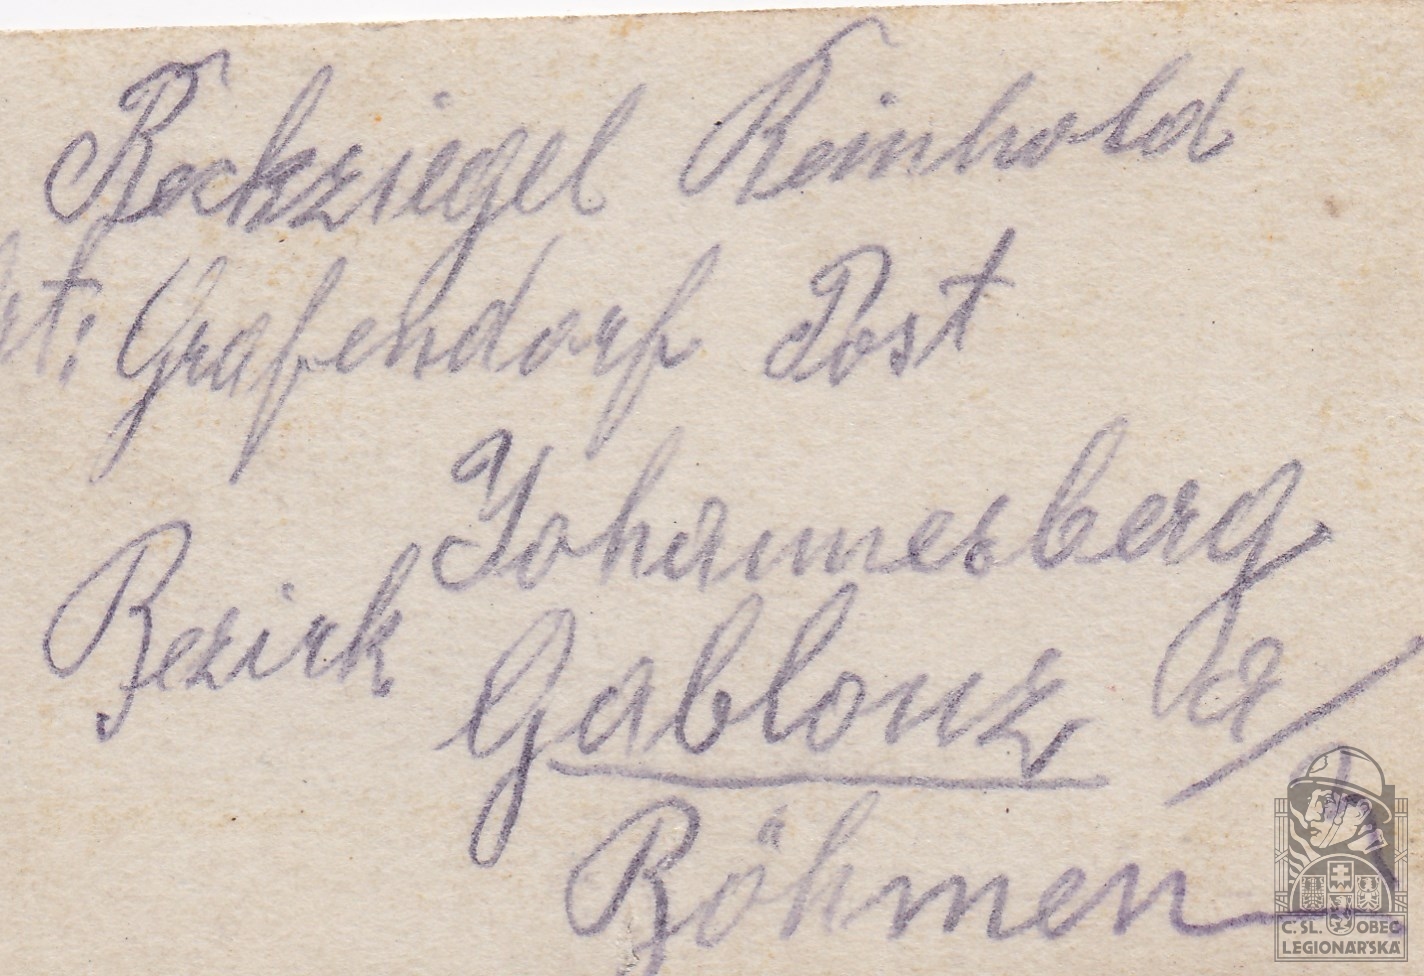 Rockziegel Reinhold
Ort: Grafendorf Post
Johannesberg
Bezirk
Gablonz a/N
Böhmen
C. SL. OBEC
LEGIONÁŘSKÁ